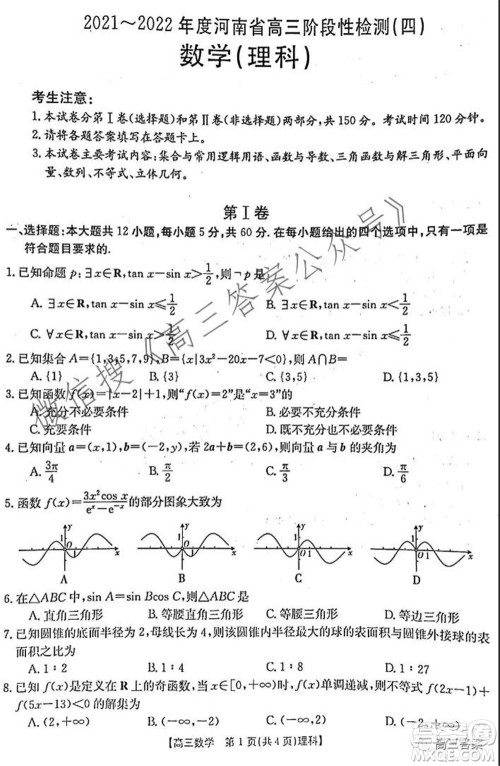 2021～2022年度河南省高三阶段性检测(四)
数学(理科)
考生注意:
1.本试卷分第Ⅰ卷(选择题)和第Ⅱ卷(非选择题)两部分,共150分。考试时间120分钟。
2.请将各题答案填写在答题卡上。
3.本试卷主要考试内容:集合与常用逻辑用语、函数与导数、三角函数与解三角形、平面向
量、数列、不等式、立体几何。
第Ⅰ卷
一、选择题:本大题共12小题,每小题5分,共60分.在每小题给出的四个选项中,只有一项是
符合题目要求的.
1.已知命题p:∃x∈R,tan x－sin x>1/2,则¬p是
A.∃x∈R,tan x－sin x<1/2 B.∃x∈R,tan x－sin x≤1/2
C.∀x∈R,tan x－sin x>1/2 D.∀x∈R,tan x－sin x≤1/2
2.已知集合A={1,3,5,7,9},B={x|3x²－20x－7<0},则A∩B=
A.{1} B.{3} C.{3,5} D.{1,3,5}
3.已知函数f(x)=|x－2|+1,则“f(x)=2”是“x=3”的
A.充分不必要条件 B.必要不充分条件
C.充要条件 D.既不充分也不必要条件
4.已知向量a=(x,1),b=(－2,y),若2a+b=(2,6),则向量a与b的夹角为
A.3π/4 B.π/2 C.π/4 D.π/6
5.函数f(x)=3x²cos x/(eˣ－e⁻ˣ)的部分图象大致为
A B C D
6.在△ABC中,sin A=sin Bcos C,则△ABC是
A.直角三角形 B.等腰直角三角形 C.等腰三角形 D.等边三角形
7.已知圆锥的底面半径为1,高为√3,则该圆锥内半径最大的球的表面积与圆锥外接球的表
面积之比为
A.1:2 B.1:4 C.1:8 D.1:27
8.已知f(x)是定义在R上的奇函数,当x∈[0,+∞)时,f(x)单调递减,则不等式f(2x－1)+
f(5x－13)<0的解集为
A.(2,+∞) B.(4,+∞) C.(－∞,2) D.(－∞,4)
【高三数学 第1页(共4页)理科】
微信搜《高三答案公众号》
高三答案